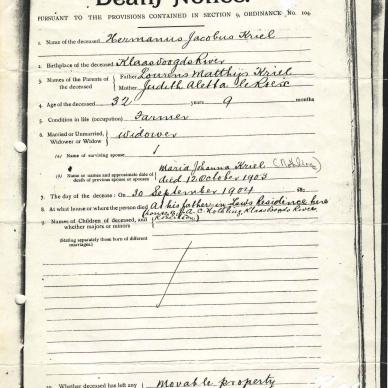 Death Notice.
PURSUANT TO THE PROVISIONS CONTAINED IN SECTION 9, ORDINANCE No. 104.
1. Name of the deceased Hermanus Jacobus Kriel
2. Birthplace of the deceased Klaasvoogds River
3. Names of the Parents of the deceased
Father Lourens Matthijs Kriel
Mother Judith Aletta le Roux
4. Age of the deceased 32 years 9 months
5. Condition in life (occupation) Farmer
6. Married or Unmarried, Widower or Widow Widower
(a) Name of surviving spouse
(b) Name or names and approximate date of death of previous spouse or spouses
Maria Johanna Kriel
died 12 October 1903
7. The day of the decease: On 30 September 1904
8. At what house or where the person died At his father in Laws Residence here
Klaasvoogds River
Robertson
9. Names of Children of deceased, and whether majors or minors
(Stating separately those born of different marriages).
10. Whether deceased has left any Movable property